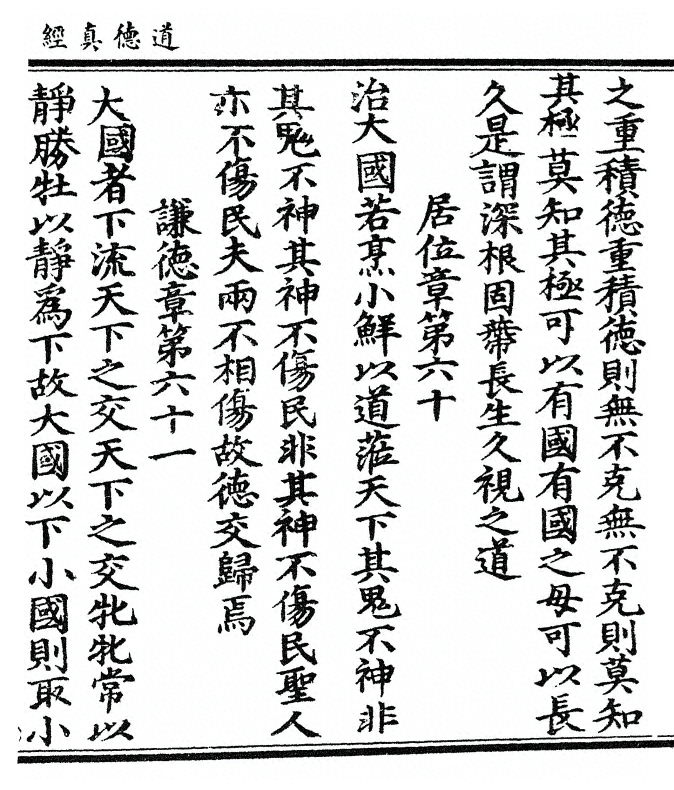 道德真經
之重積德重積德則無不克無不克則莫知
其極莫知其極可以有國有國之母可以長
久是謂深根固蔕長生久視之道
居位章第六十
治大國若烹小鮮以道蒞天下其鬼不神非
其鬼不神其神不傷民非其神不傷民聖人
亦不傷民夫兩不相傷故德交歸焉
謙德章第六十一
大國者下流天下之交天下之交牝牝常以
靜勝牡以靜爲下故大國以下小國則取小